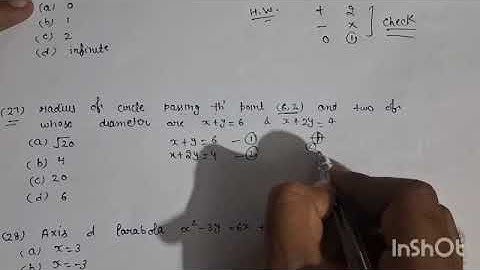 (a) 0
(b) 1
(c) 2
(d) infinite
H.W. + 2
- x
0 ①
check
(27) radius of circle passing thr point (6,2) and two of
whose diameter are x+y=6 & x+2y=4
(a) √20
(b) 4
(c) 20
(d) 6
x+y=6 — ①
x+2y=4 — ②
(28) Axis d parabola x²-3y=6x +
(a) x=3
(b) x=-3
InShOt